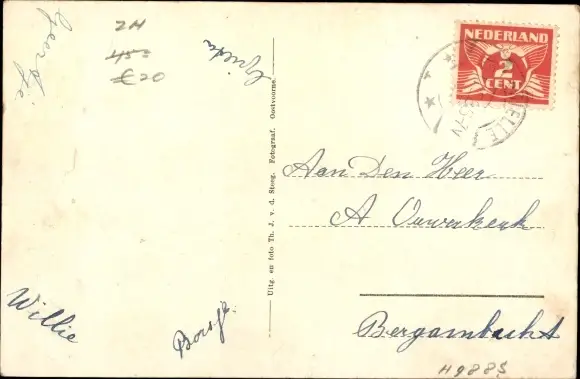 Geertje
ZH
45=
€20
Grieta
NEDERLAND
2
CENT
ELLE
Aan Den Heer
A Ouwerkerk
Bergambacht
Uitg. en foto Th. J. v. d. Steeg. Fotograaf. Oostvoorne.
Willie
Borsje
H9885